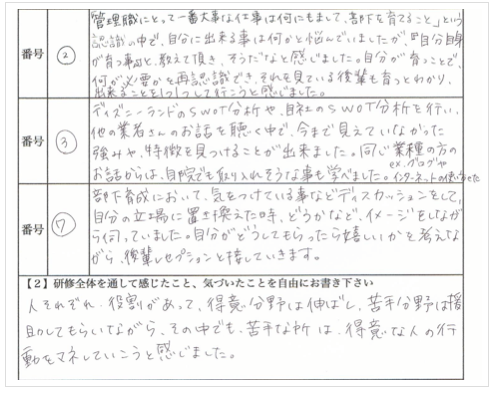 管理職にとって一番大事な仕事は何にもまして、部下を育てること」という
認識の中で、自分に出来る事は何かと悩んでいましたが、『自分自身
が育つ事』と、教えて頂き、そうだなと感じました。自分が育つことで、
番号 ②
何が必要かを再認識でき、それを見ている後輩も育つとわかり、
出来ることを1つ1つして行こうと感じました。
ディズニーランドのSWOT分析や、自社のSWOT分析を行い、
他の業者さんのお話を聴く中で、今まで見えていなかった
番号 ③
強みや、特徴を見つけることが出来ました。同じ業種の方の
お話からは、自院でも取り入れそうな事も学べました。
ex.ブログや
インターネットの使い方など
部下育成において、気をつけている事などディスカッションをして、
自分の立場に置き換えた時、どうかなど、イメージをしなが
番号 ⑦
ら伺っていました。自分がどうしてもらったら嬉しいかを考えな
がら、後輩レセプションと接していきます。
【2】研修全体を通して感じたこと、気づいたことを自由にお書き下さい
人それぞれ、役割があって、得意分野は伸ばし、苦手分野は援
助してもらいながら、その中でも、苦手な所は、得意な人の行
動をマネしていこうと感じました。